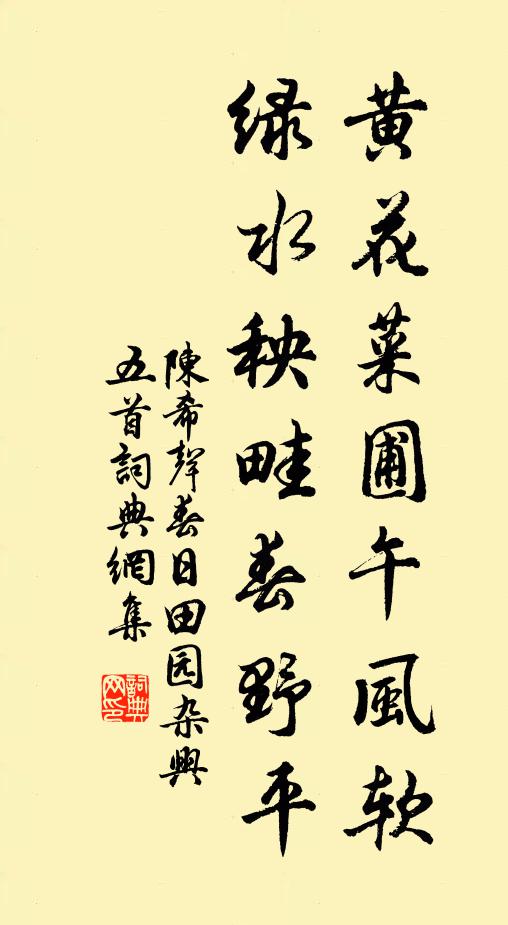 黄花菜圃午風软
绿水秧畦春野平
陳希聲春日田园杂興
五首詞典網集
詞典网印